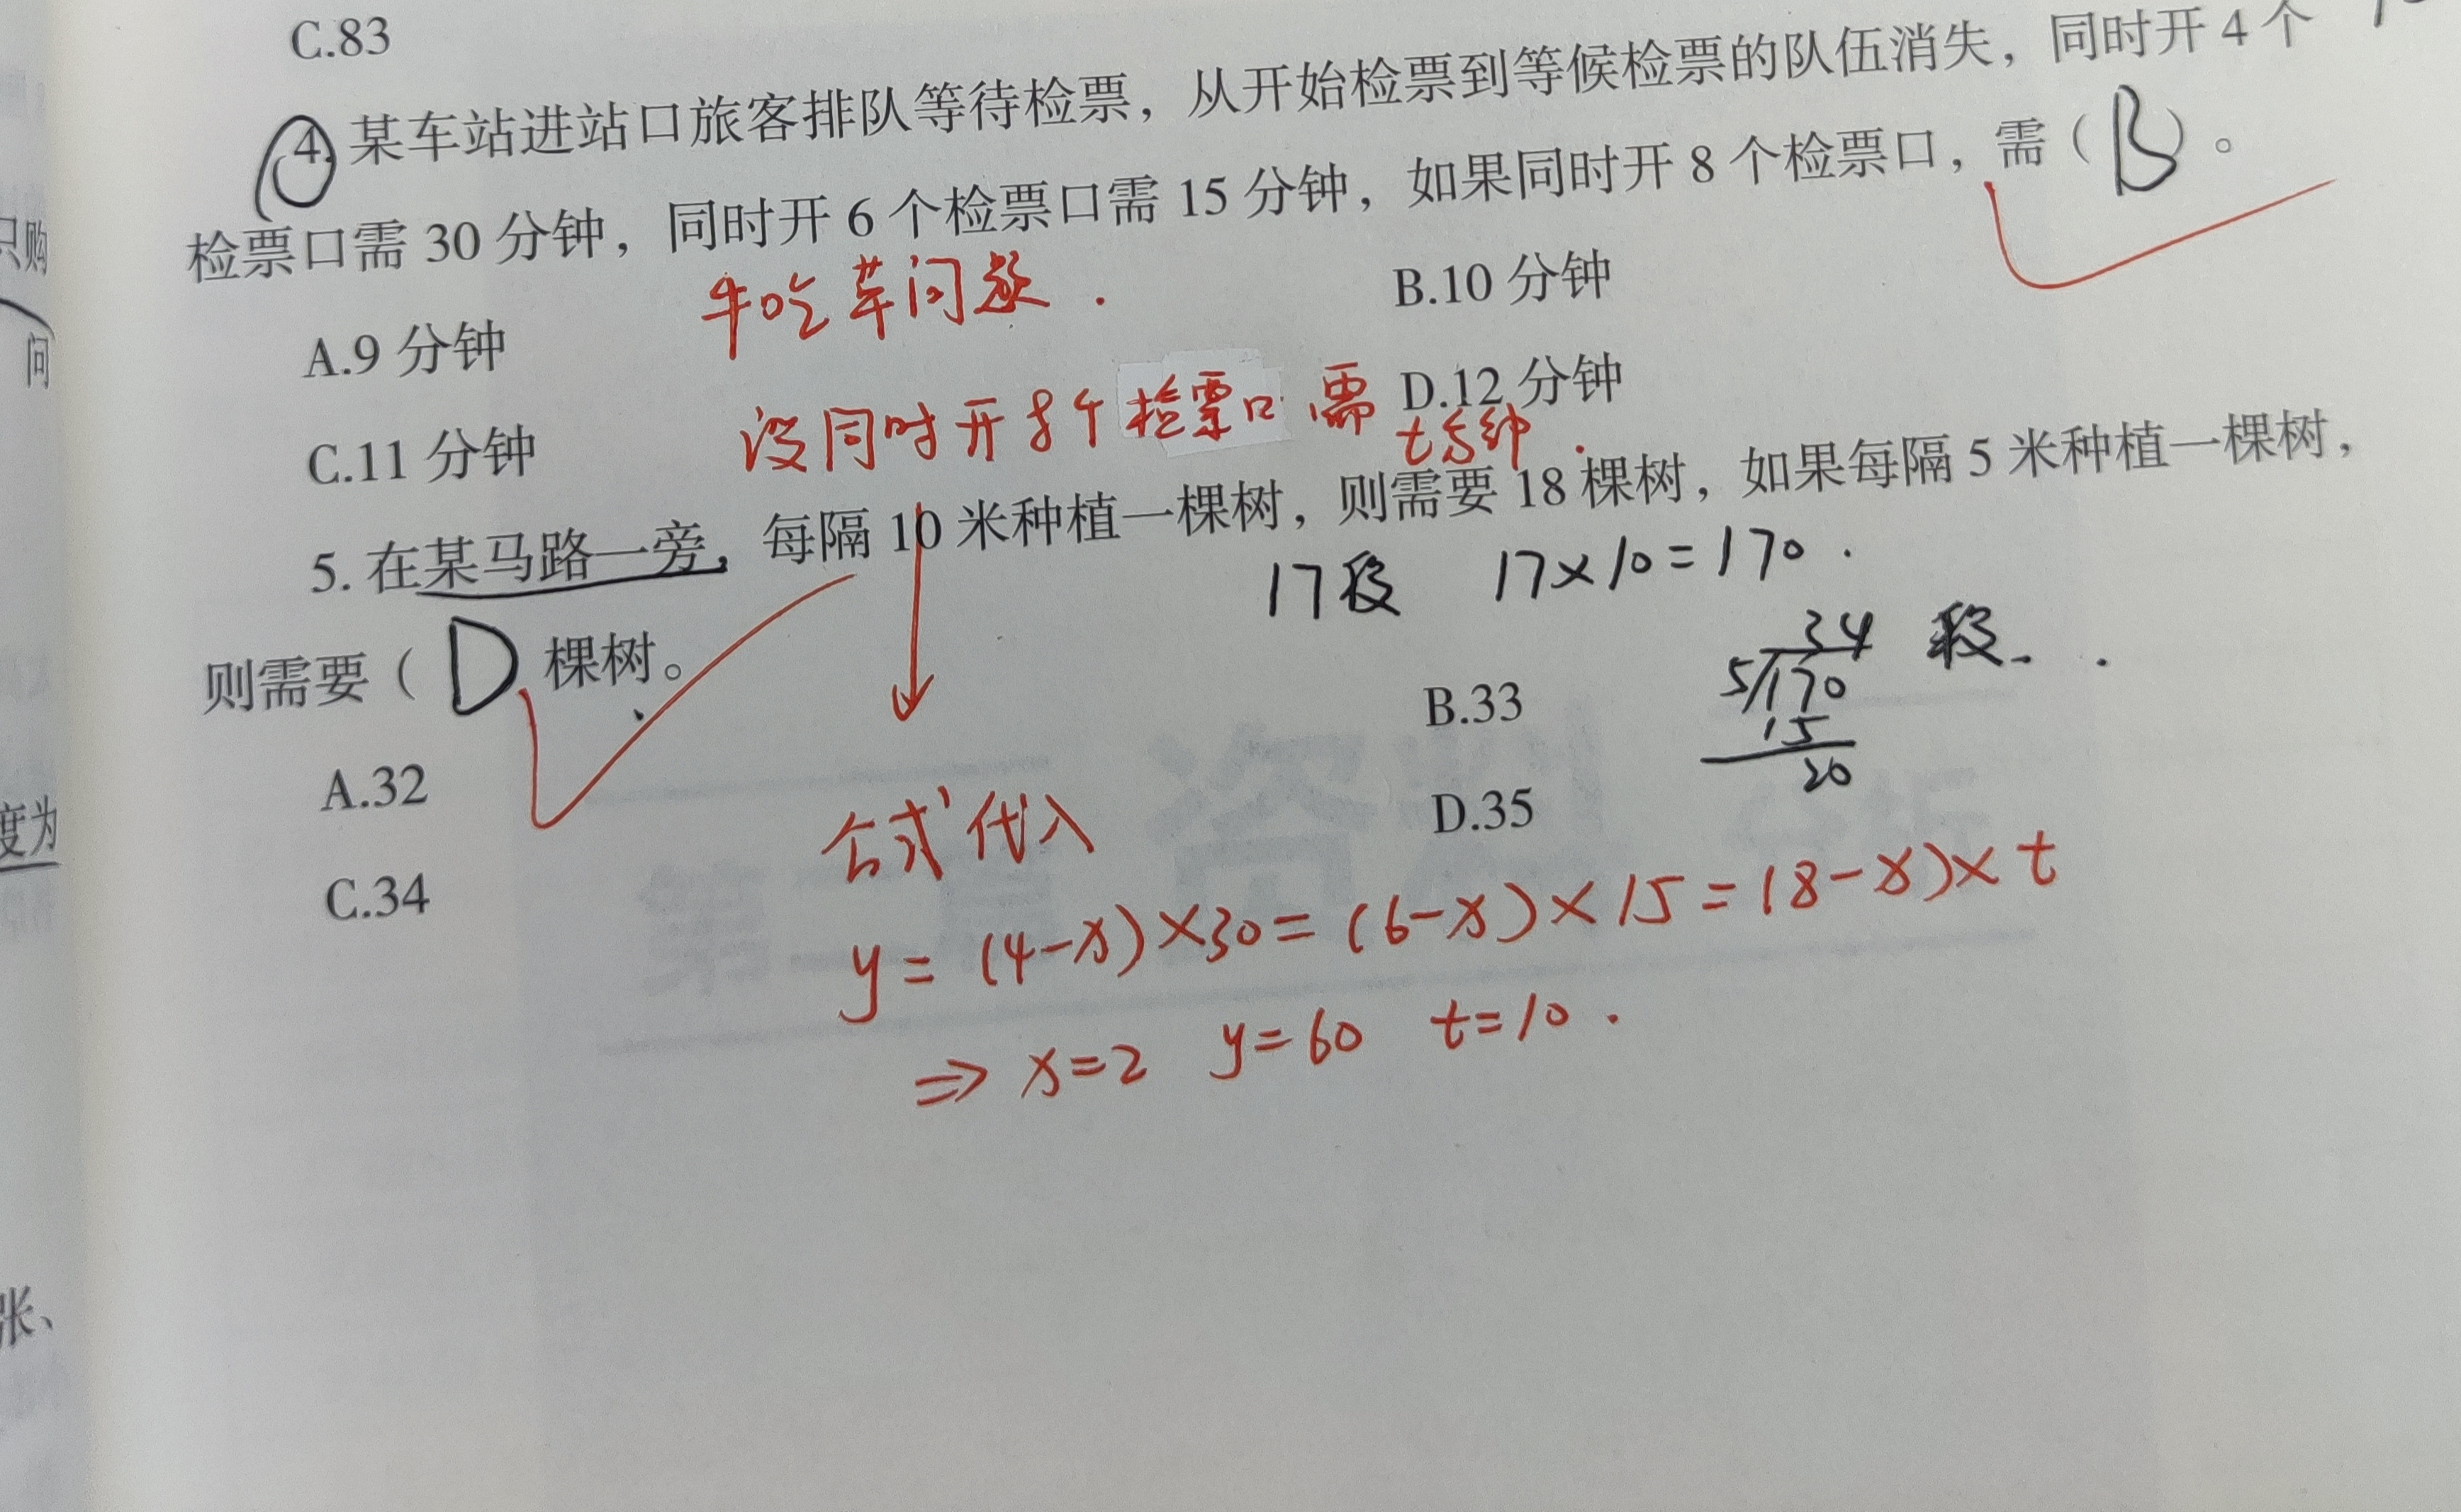 C.83
4. 某车站进站口旅客排队等待检票，从开始检票到等候检票的队伍消失，同时开 4 个
检票口需 30 分钟，同时开 6 个检票口需 15 分钟，如果同时开 8 个检票口，需（B）。
牛吃草问题.
A.9 分钟
B.10 分钟
设同时开8个检票口需
t分钟.
C.11 分钟
D.12 分钟
5. 在某马路一旁，每隔 10 米种植一棵树，则需要 18 棵树，如果每隔 5 米种植一棵树，
17段 17×10=170.
则需要（D 棵树。
34 段.
5/170
15
20
A.32
B.33
C.34
D.35
公式代入
y=(4-x)×30=(6-x)×15=(8-x)×t
⇒ x=2 y=60 t=10.
只购
问
度为
张、